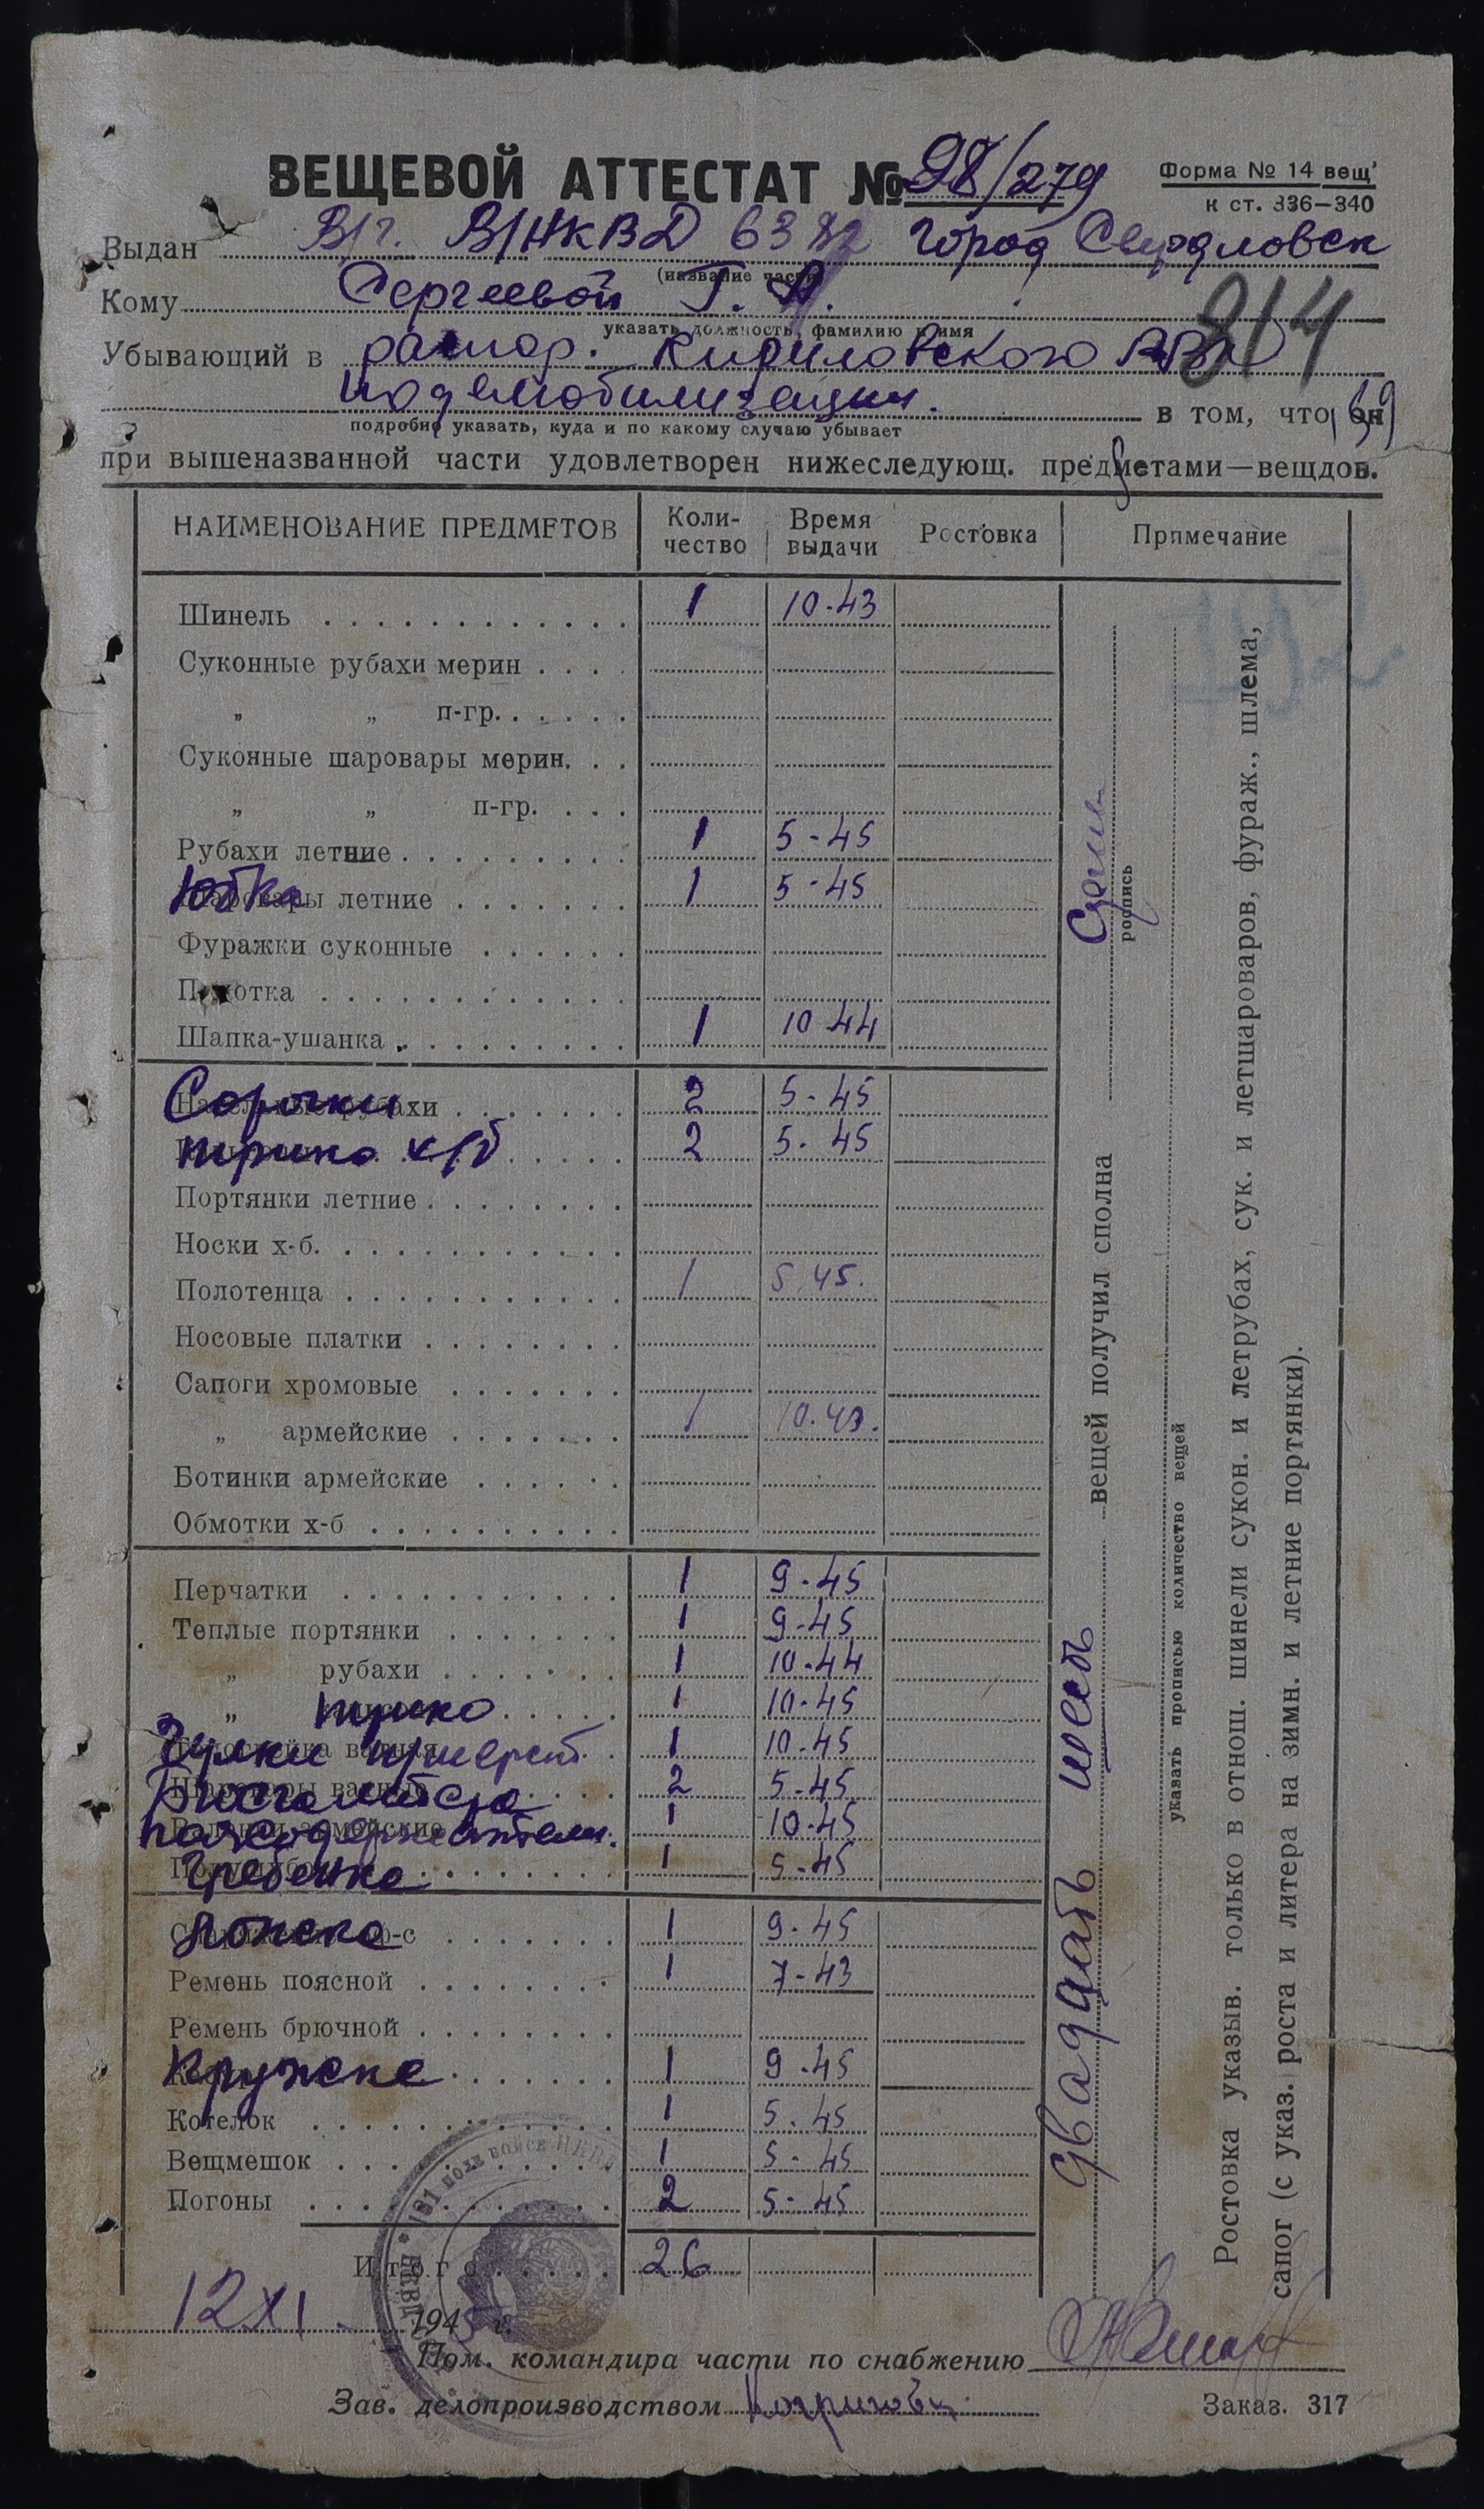 ВЕЩЕВОЙ АТТЕСТАТ № 98/279
Форма № 14 вещ
к ст. 336—340
Выдан В/ч. В/НКВД 6382 город Свердловск
(название части)
Кому Сергеевой Г. А.
указать должность, фамилию и имя
814
Убывающий в распор. Кириловского РВК
по демобилизации.
в том, что он
подробно указать, куда и по какому случаю убывает
при вышеназванной части удовлетворен нижеследующ. предметами—вещдов.
НАИМЕНОВАНИЕ ПРЕДМЕТОВ Коли-чество Время выдачи Ростовка Примечание
Шинель 1 10-43
Суконные рубахи мерин
„ „ п-гр.
Суконные шаровары мерин.
„ „ п-гр.
Рубахи летние 1 5-45
Юбка летние 1 5-45
Фуражки суконные
Пилотка
Шапка-ушанка 1 10-44
Сорочки рубахи 2 5-45
трико х/б 2 5-45
Портянки летние
Носки х-б.
Полотенца 1 5.45.
Носовые платки
Сапоги хромовые
„ армейские 1 10.43.
Ботинки армейские
Обмотки х-б
Перчатки 1 9-45
Теплые портянки 1 9-45
„ рубахи 1 10-44
„ трико 1 10-45
Чулки 1 10-45
Бюстгальтера 2 5-45
поясодержатели. 1 10-45
Гребенка 1 5-45
Ложка 1 9-45
Ремень поясной 1 7-43
Ремень брючной
Кружка 1 9-45
Котелок 1 5-45
Вещмешок 1 5-45
Погоны 2 5-45
Итого 26
двадцать шесть вещей получил сполна
роспись
указать прописью количество вещей
Ростовка указыв. только в отнош. шинели сукон. и летрубах, сук. и летшароваров, фураж., шлема,
сапог (с указ. роста и литера на зимн. и летние портянки).
181 полк войск НКВД
12 XI 1945 г.
Пом. командира части по снабжению
Зав. делопроизводством
Заказ. 317